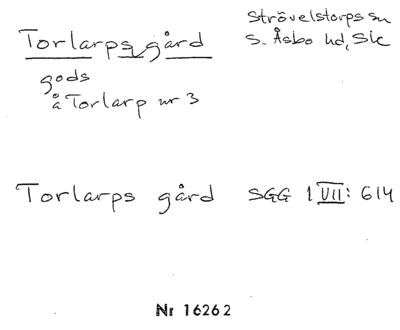 Torlarps gård
gods
å Torlarp nr 3
Strövelstorps sn
S. Åsbo hd, Sk
Torlarps gård SGG 1 VII: 614
Nr 16262